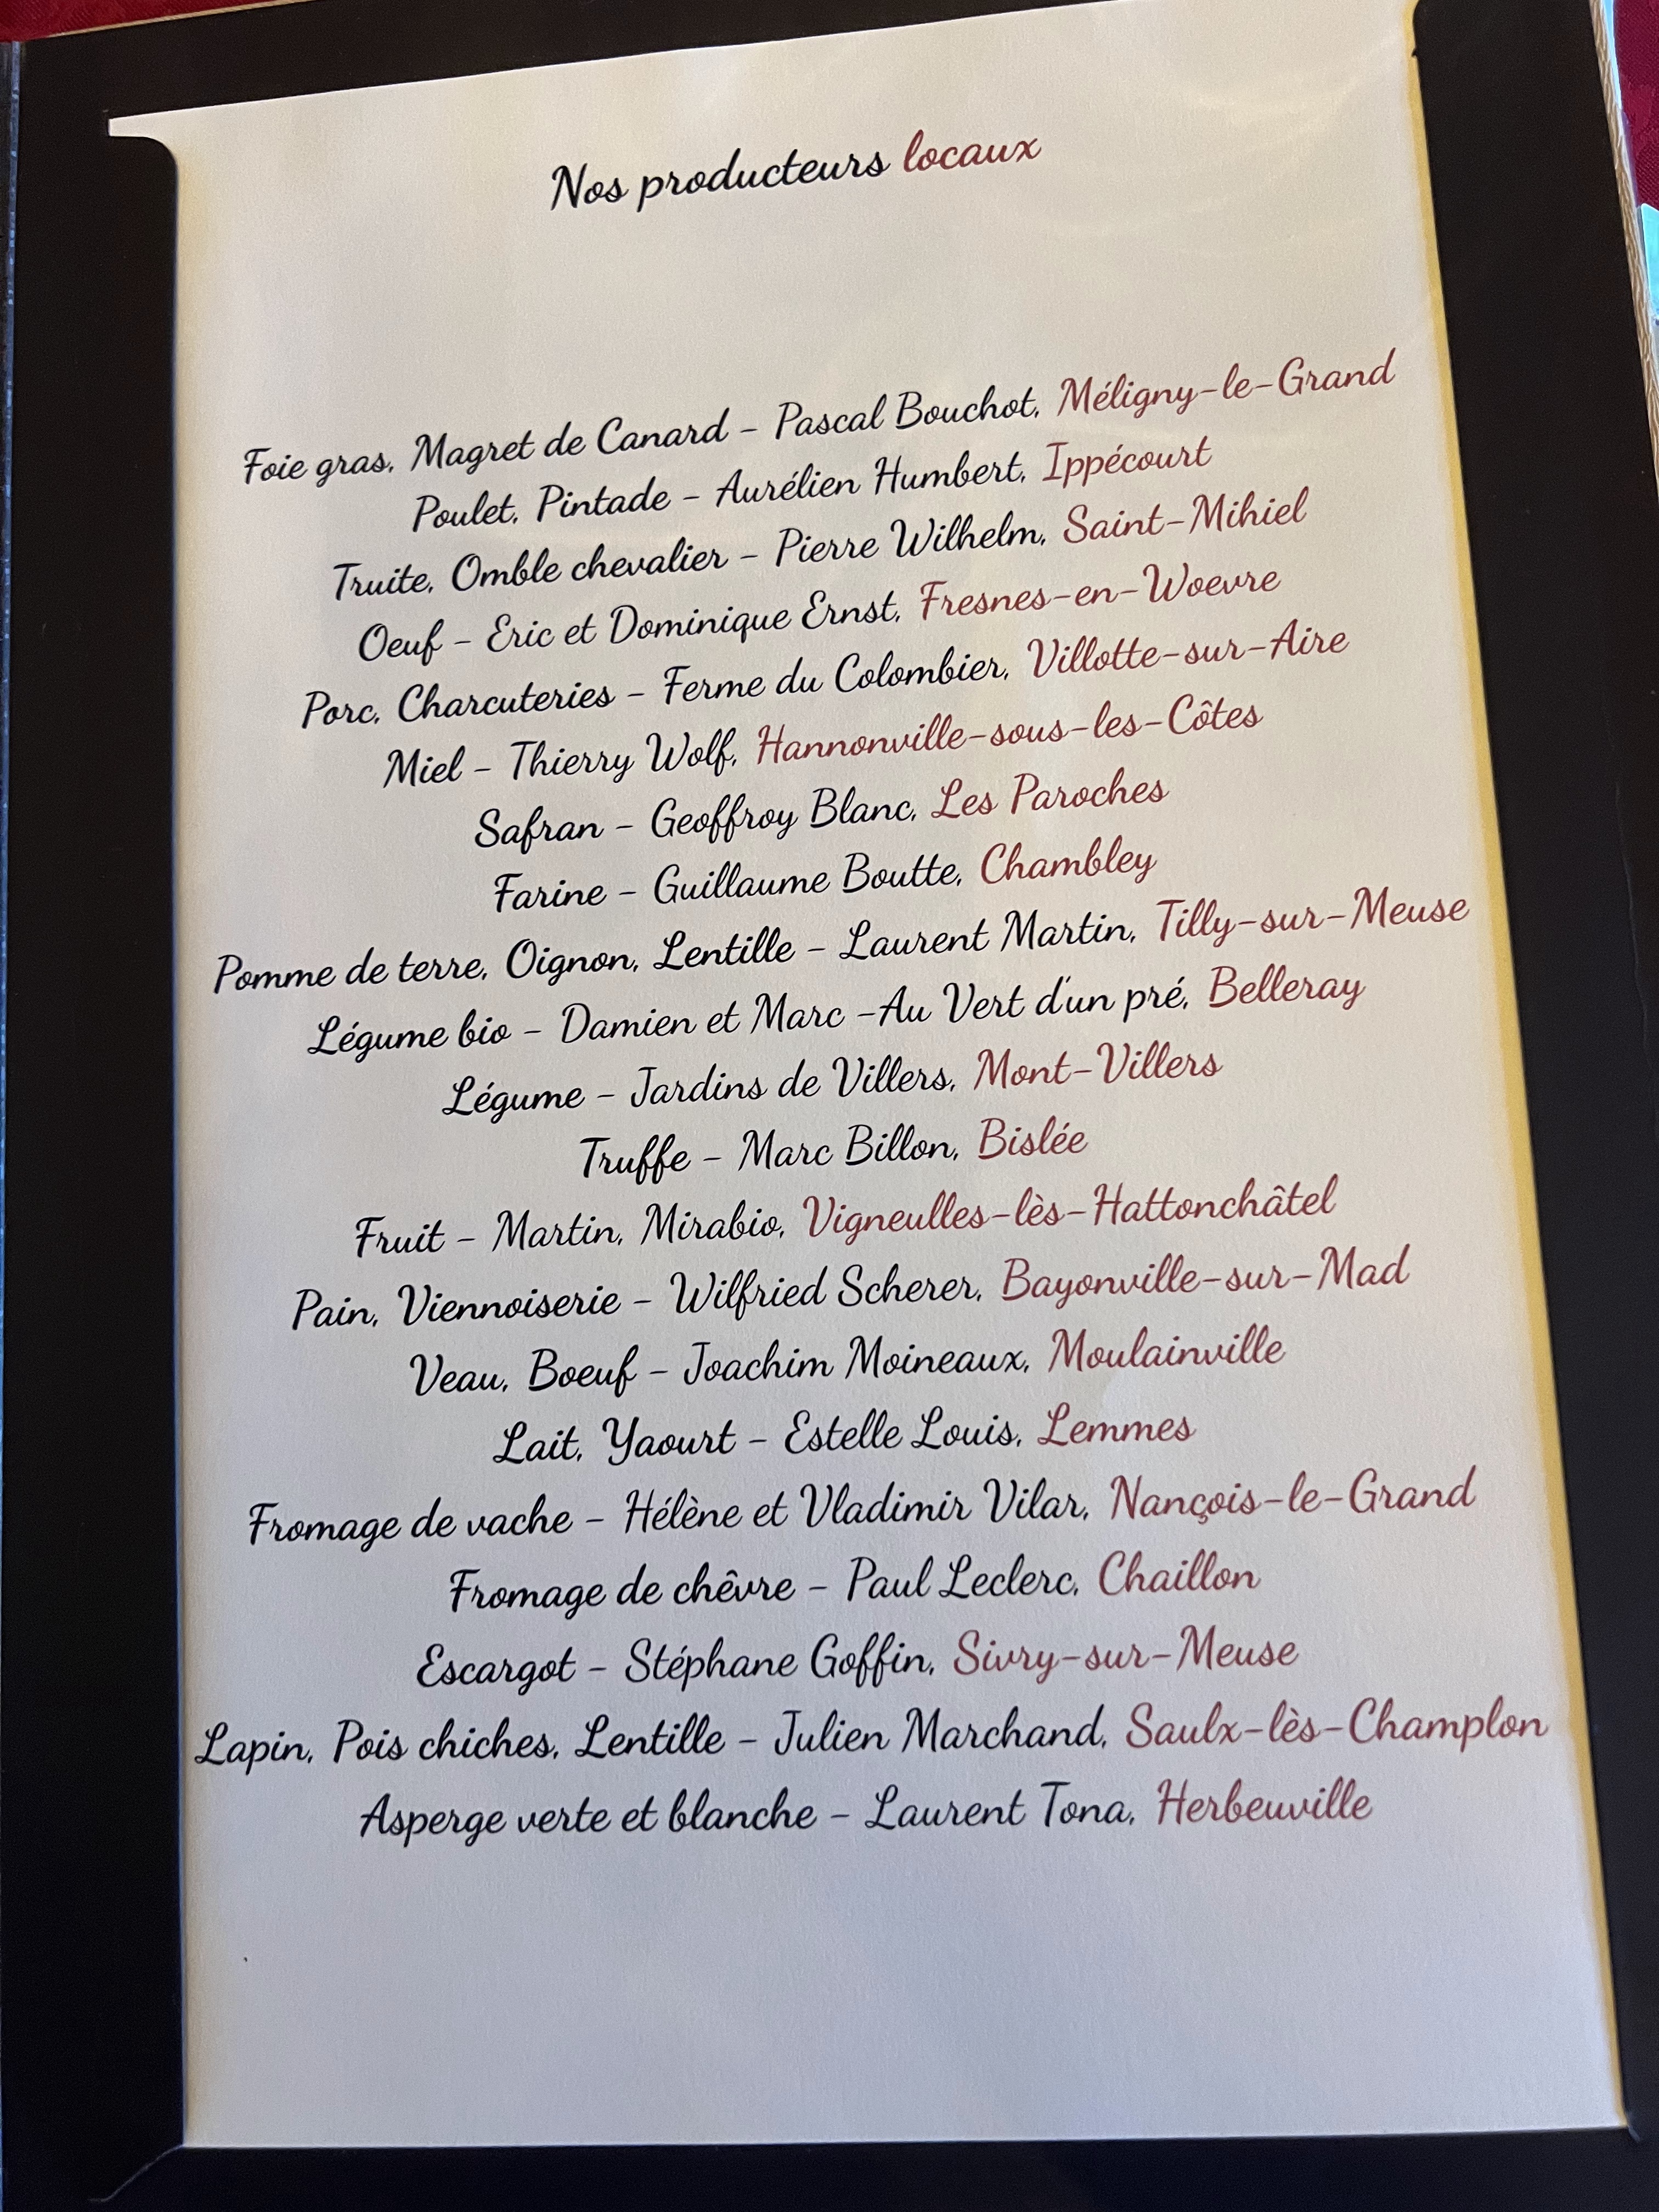 Nos producteurs locaux
Foie gras, Magret de Canard - Pascal Bouchot, Méligny-le-Grand
Poulet, Pintade - Aurélien Humbert, Ippécourt
Truite, Omble chevalier - Pierre Wilhelm, Saint-Mihiel
Oeuf - Eric et Dominique Ernst, Fresnes-en-Woevre
Porc, Charcuteries - Ferme du Colombier, Villotte-sur-Aire
Miel - Thierry Wolf, Hannonville-sous-les-Côtes
Safran - Geoffroy Blanc, Les Paroches
Farine - Guillaume Boutte, Chambley
Pomme de terre, Oignon, Lentille - Laurent Martin, Tilly-sur-Meuse
Légume bio - Damien et Marc -Au Vert d'un pré, Belleray
Légume - Jardins de Villers, Mont-Villers
Truffe - Marc Billon, Bislée
Fruit - Martin, Mirabio, Vigneulles-lès-Hattonchâtel
Pain, Viennoiserie - Wilfried Scherer, Bayonville-sur-Mad
Veau, Boeuf - Joachim Moineaux, Moulainville
Lait, Yaourt - Estelle Louis, Lemmes
Fromage de vache - Hélène et Vladimir Vilar, Nançois-le-Grand
Fromage de chêvre - Paul Leclerc, Chaillon
Escargot - Stéphane Goffin, Sivry-sur-Meuse
Lapin, Pois chiches, Lentille - Julien Marchand, Saulx-lès-Champlon
Asperge verte et blanche - Laurent Tona, Herbeuville